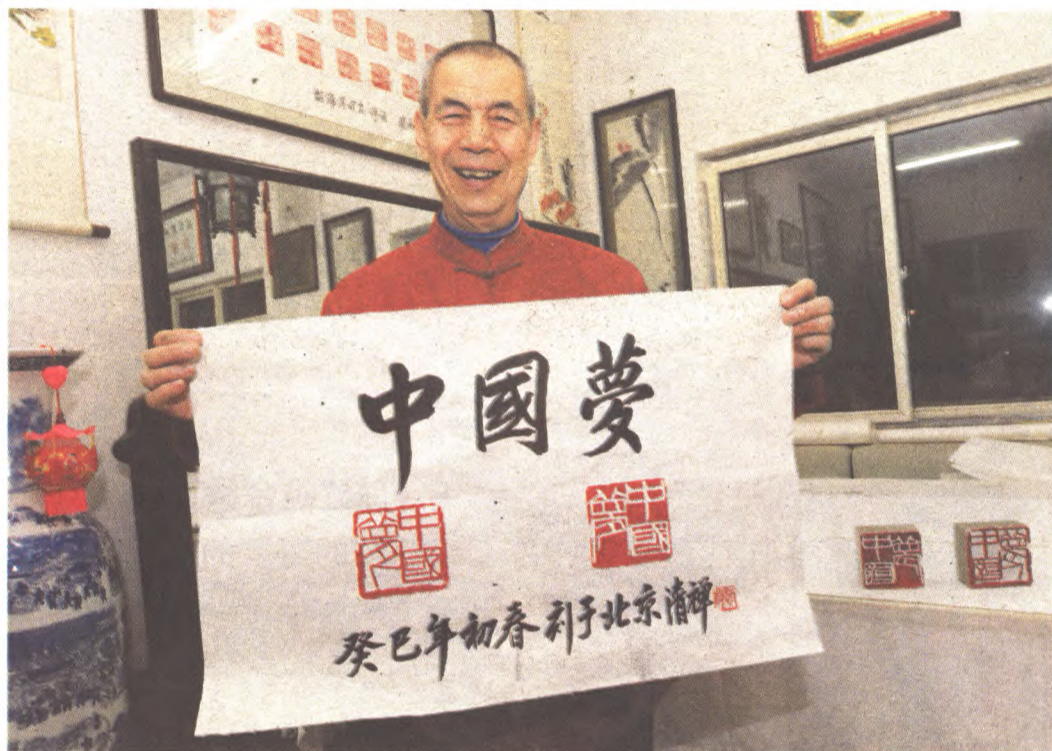 中國夢
中國夢
中國夢
癸巳年初春刊于北京清禪